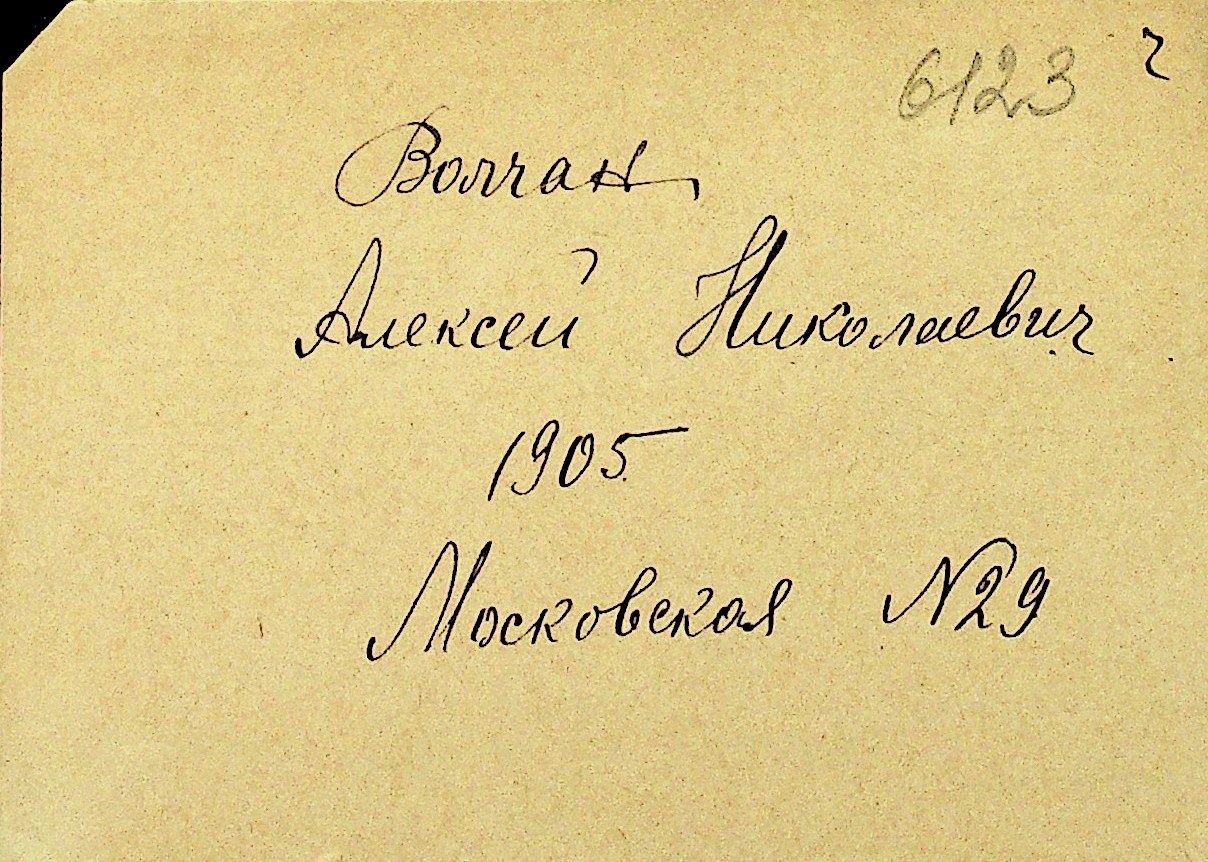 6123 ч
Волчан
Алексей Николаевич
1905
Московская N29